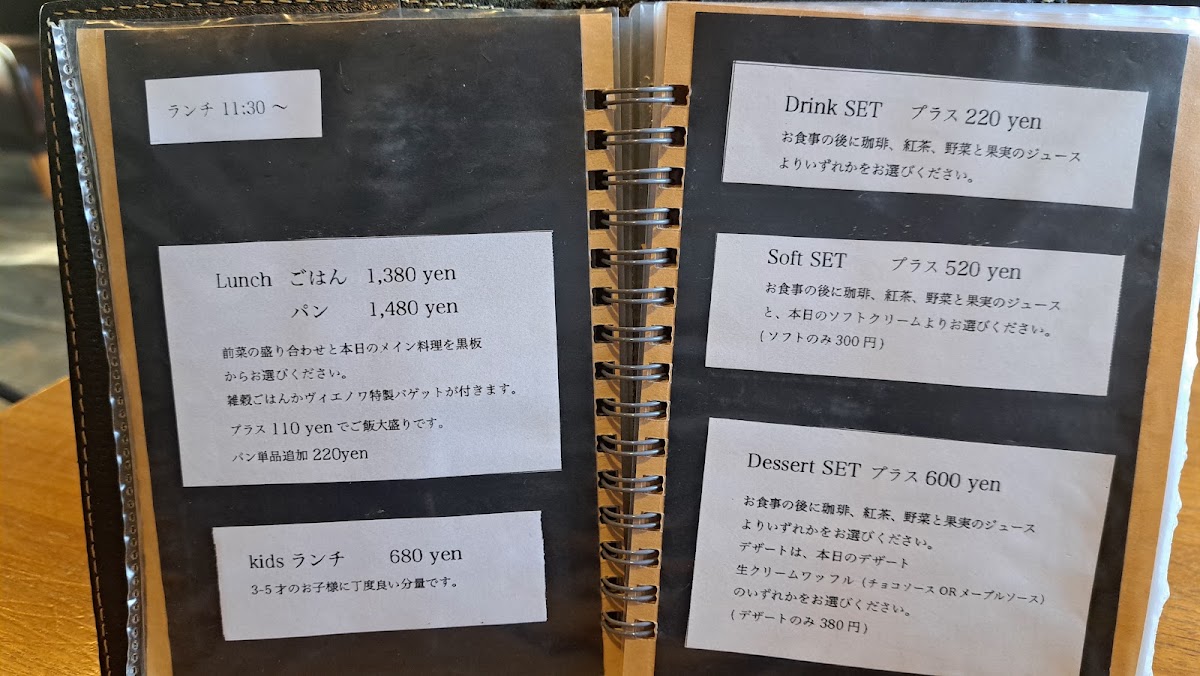 ランチ 11:30 ～
Lunch ごはん 1,380 yen
パン 1,480 yen
前菜の盛り合わせと本日のメイン料理を黒板
からお選びください。
雑穀ごはんかヴィエノワ特製バゲットが付きます。
プラス 110 yen でご飯大盛りです。
パン単品追加 220yen
kids ランチ 680 yen
3-5 才のお子様に丁度良い分量です。
Drink SET プラス 220 yen
お食事の後に珈琲、紅茶、野菜と果実のジュース
よりいずれかをお選びください。
Soft SET プラス 520 yen
お食事の後に珈琲、紅茶、野菜と果実のジュース
と、本日のソフトクリームよりお選びください。
( ソフトのみ 300 円 )
Dessert SET プラス 600 yen
お食事の後に珈琲、紅茶、野菜と果実のジュース
よりいずれかをお選びください。
デザートは、本日のデザート
生クリームワッフル（チョコソース OR メープルソース）
のいずれかをお選びください。
( デザートのみ 380 円 )